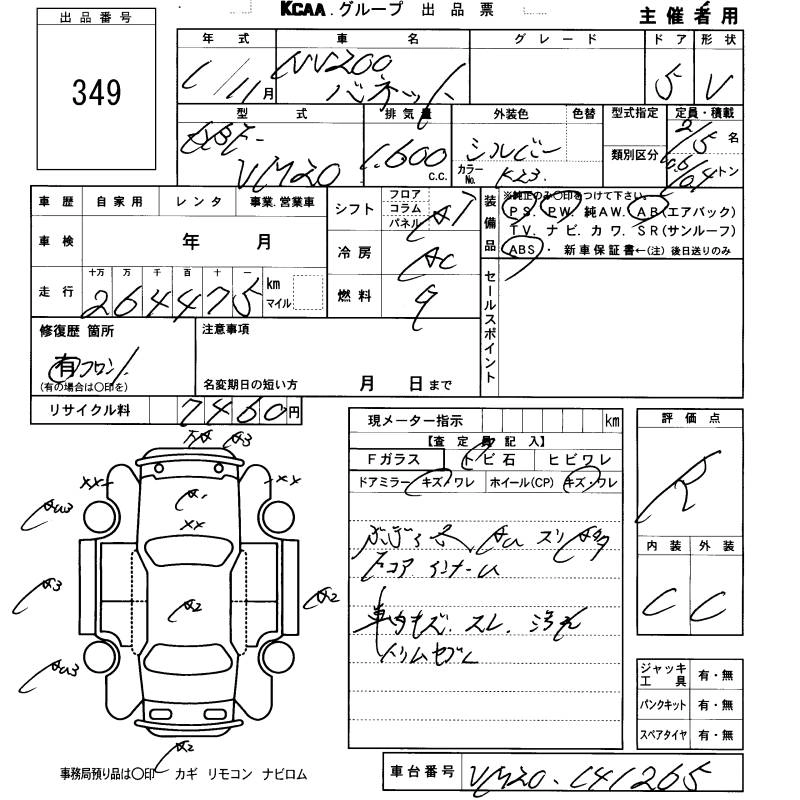 KCAA.グループ 出品票
主催者用
出品番号
349
年式 車名 グレード ドア 形状
1/11月 NV200 バネット 5 V
型式 排気量 外装色 色替 型式指定 定員・積載
類別区分
VM20 1,600 c.c. シルバー カラーNo. K23 2/5名 トン
車歴 自家用 レンタ 事業.営業車
シフト フロア コラム パネル AT
車検 年 月
冷房 AC
走行 十万 万 千 百 十 一
264475 km マイル
燃料
装備品 ※純正のみ〇印をつけて下さい。
PS. PW. 純AW. AB(エアバック)
TV. ナビ. カワ. SR(サンルーフ)
ABS・ 新車保証書←(注) 後日送りのみ
セールスポイント
修復歴 箇所
有 フロント
(有の場合は〇印を)
注意事項
名変期日の短い方 月 日まで
リサイクル料 7460円
現メーター指示 km
【査定員記入】
Fガラス トビ石 ヒビワレ
ドアミラー キズ・ワレ ホイール(CP) キズ・ワレ
評価点
R
内装 外装
C C
A3
XX XX
A1
XX
A3
A2
A2
A2
車内キズ. スレ. 汚れ
ジャッキ工具 有・無
パンクキット 有・無
スペアタイヤ 有・無
事務局預り品は〇印 カギ リモコン ナビロム
車台番号 VM20-141265